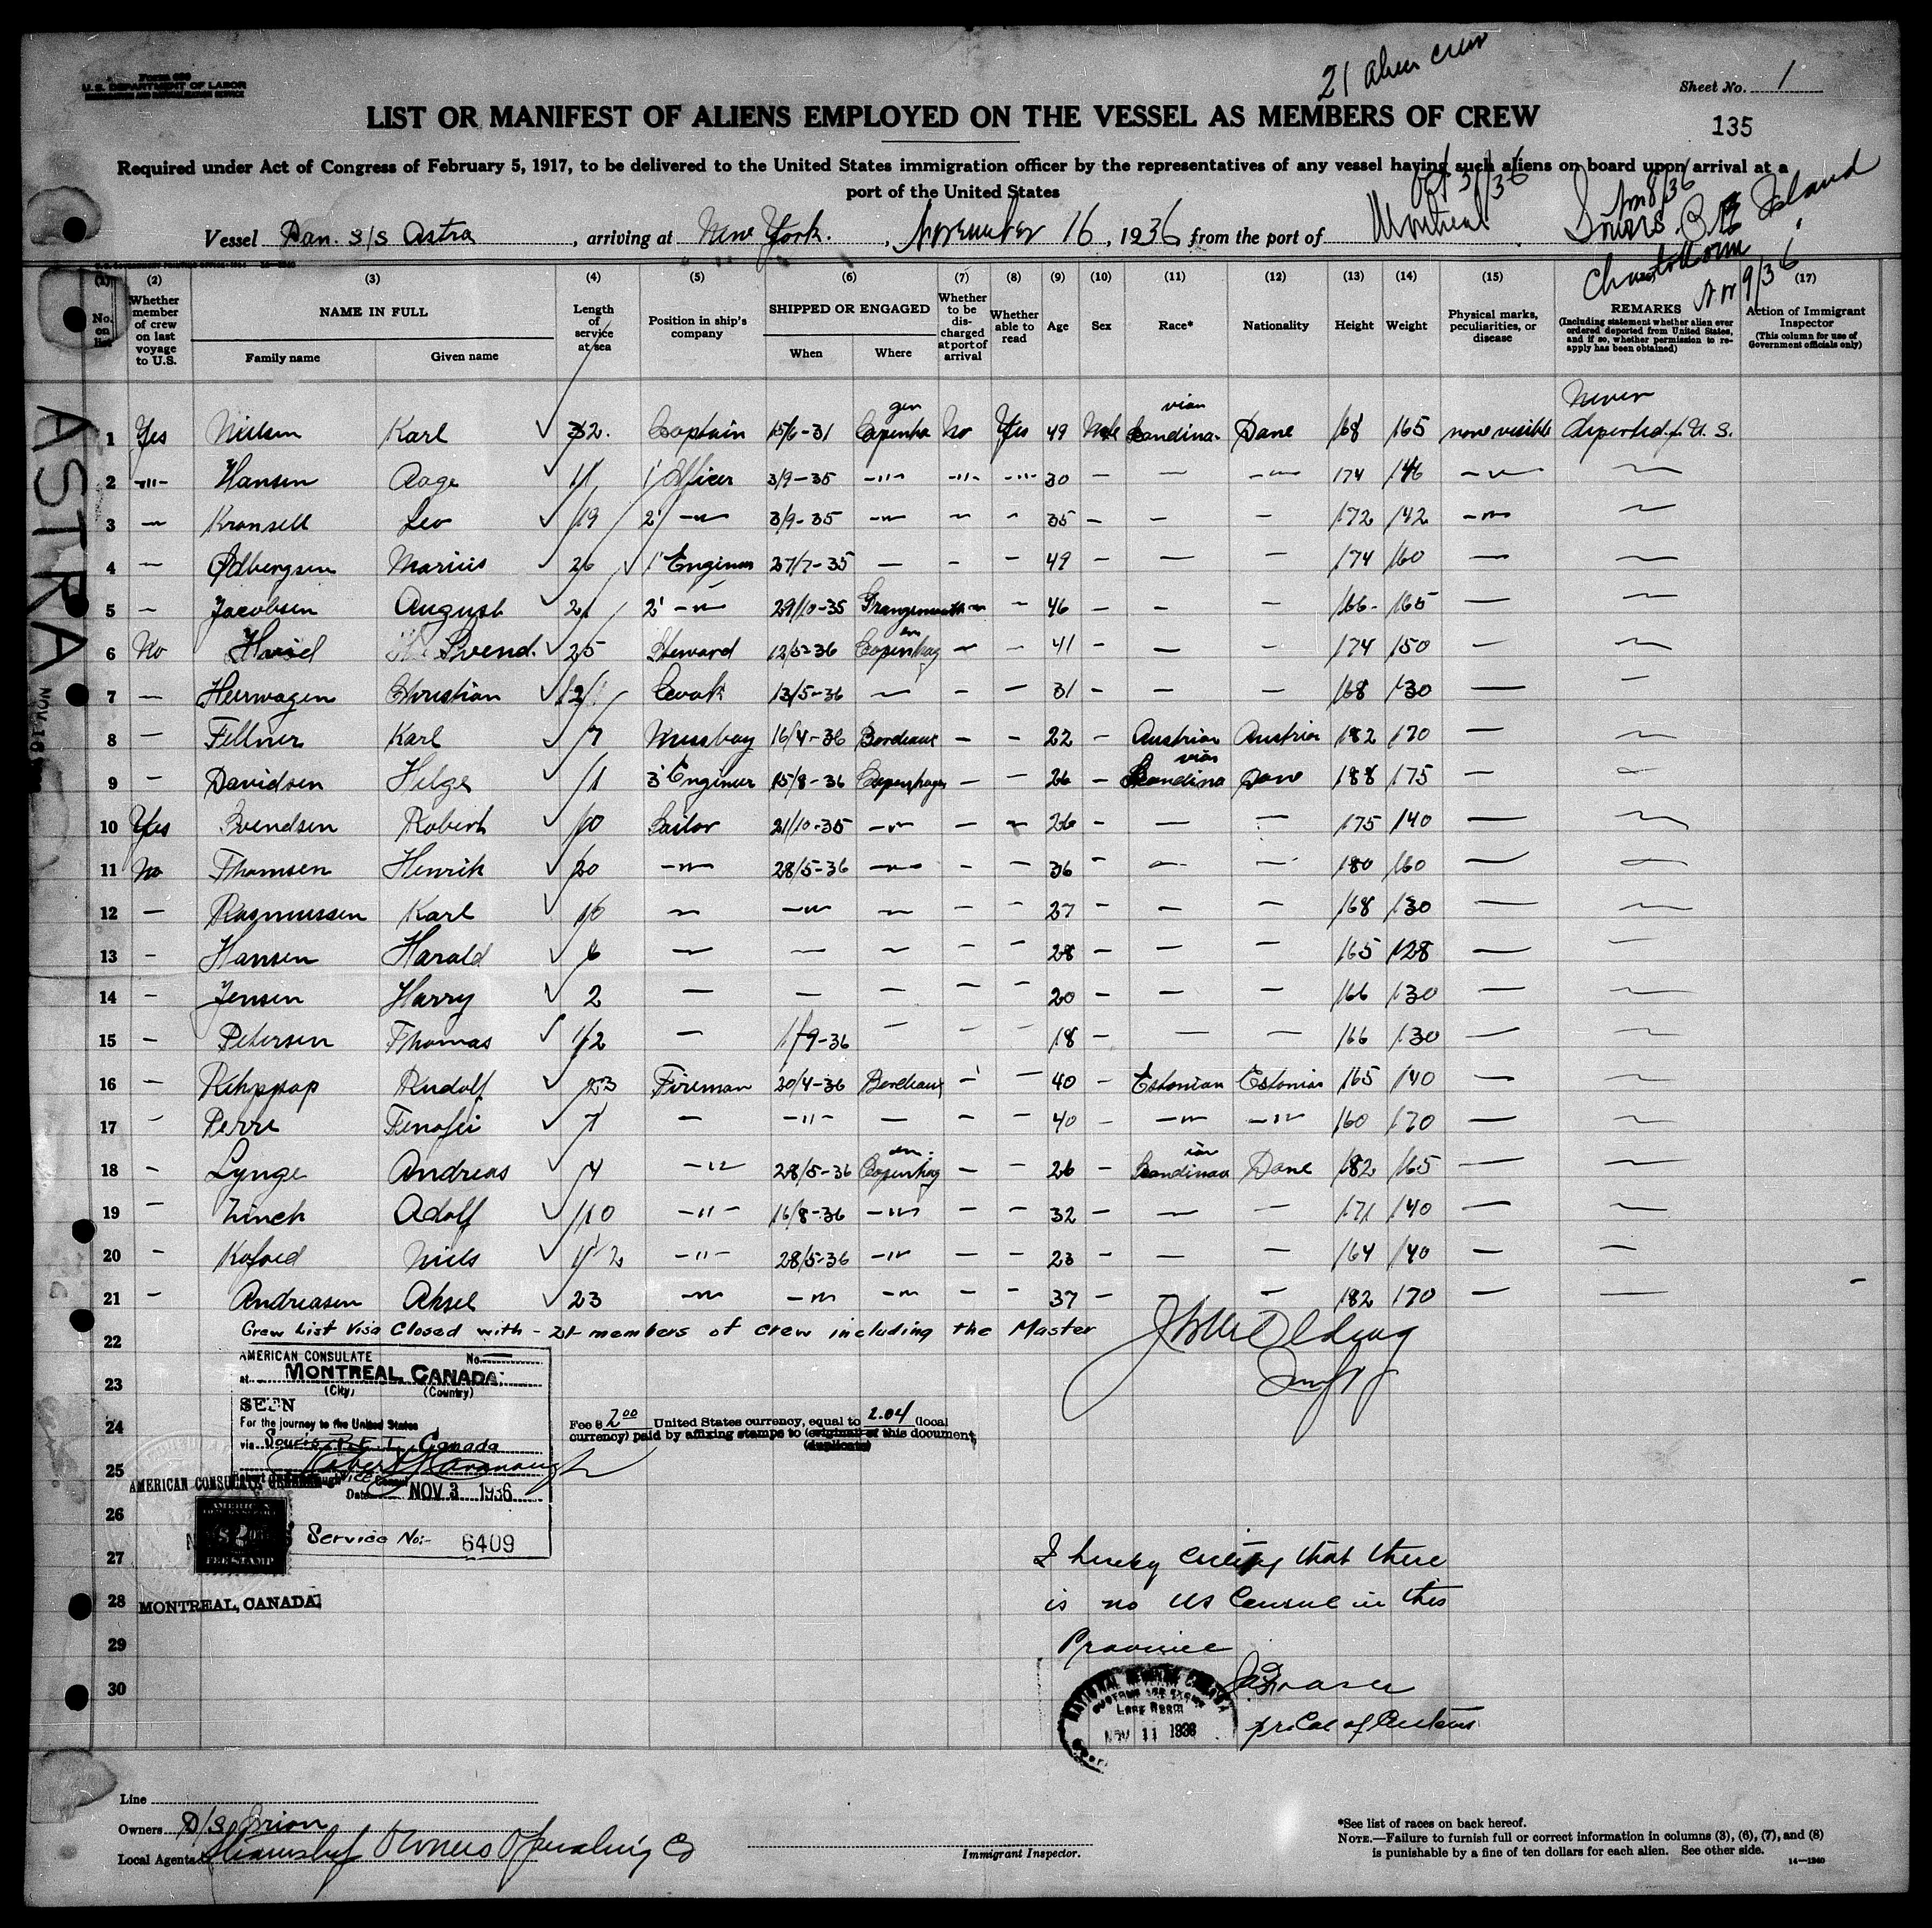 21 alien crew
Form 680
U.S. DEPARTMENT OF LABOR
IMMIGRATION AND NATURALIZATION SERVICE
Sheet No. 1
LIST OR MANIFEST OF ALIENS EMPLOYED ON THE VESSEL AS MEMBERS OF CREW
135
Required under Act of Congress of February 5, 1917, to be delivered to the United States immigration officer by the representatives of any vessel having such aliens on board upon arrival at a
port of the United States
Oct 31/36 Nov 8/36
Vessel Dan. S/S Astra, arriving at New York., November 16, 1936 from the port of Montreal Souris P.E. Island
Charlottetown Nov 9/36
(1) (2) (3) (4) (5) (6) (7) (8) (9) (10) (11) (12) (13) (14) (15) (17)
No. on list
Whether member of crew on last voyage to U.S.
NAME IN FULL
Family name
Given name
Length of service at sea
Position in ship's company
SHIPPED OR ENGAGED
When
Where
Whether to be discharged at port of arrival
Whether able to read
Age
Sex
Race*
Nationality
Height
Weight
Physical marks, peculiarities, or disease
REMARKS
(Including statement whether alien ever ordered deported from United States, and if so, whether permission to reapply has been obtained)
Action of Immigrant Inspector
(This column for use of Government officials only)
ASTRA
NOV 16
1 Yes Nielsen Karl 32. Captain 15/6-31 Copenhagen No Yes 49 Male Scandinavian Dane 168 165 none visible Never deported f. U.S.
2 -"- Hansen Aage 11 1' Officer 3/9-35 -"- -"- -"- 30 - - -"- 174 146 -"- -
3 - Kronsell Leo 19 2' -"- 3/9-35 -"- - - 35 - - - 172 142 -"- -
4 - Marius 26 1' Engineer 27/7-35 - - - 49 - - - 174 160 - -
5 - Jacobsen August 21 2' -"- 29/10-35 Grangemouth - - 46 - - - 166 - 165 - -
6 No Svend. 25 Steward 12/5-36 Copenhagen - - 41 - - - 174 150 - -
7 - Heerwagen Christian 12 Cook 13/5-36 - - - 31 - - - 168 130 - -
8 - Fellner Karl 7 Messboy 16/4-36 Bordeaux - - 22 - Austrian Austria 182 170 - -
9 - Davidsen Helge 11 3' Engineer 15/8-36 Copenhagen - - 26 - Scandinavian Dane 188 175 - -
10 Yes Svendsen Robert 10 Sailor 21/10-35 -"- - - 26 - - - 175 140 - -
11 No Thomsen Henrik 20 -"- 28/5-36 -"- - - 36 - - - 180 160 - -
12 - Rasmussen Karl 10 - -"- - - - 27 - - - 168 130 - -
13 - Hansen Harald 6 - - - - - 28 - - - 165 128 - -
14 - Jensen Harry 2 - - - - - 20 - - - 166 130 - -
15 - Petersen Thomas 1/2 - 1/9-36 - - - 18 - - - 166 130 - -
16 - Rudolf 23 Fireman 20/4-36 Bordeaux - - 40 - Estonian Estonia 165 140 - -
17 - Perre 7 - -"- - - - 40 - -"- -"- 160 170 - -
18 - Lynge Andreas 4 -"- 28/5-36 Copenhagen - - 26 - Scandinavian Dane 182 165 - -
19 - Zinck Adolf 10 -"- 16/8-36 -"- - - 32 - - - 171 140 - -
20 - Kofoed Niels 1 1/2 -"- 28/5-36 -"- - - 23 - - - 164 140 - -
21 - Andreasen Aksel 23 -"- -"- -"- - - 37 - - - 182 170 - -
22 Crew List Visa Closed with - 21 members of crew including the Master
23
24
25
26
27
28
29
30
AMERICAN CONSULATE No.
at MONTREAL, CANADA.
(City) (Country)
SEEN
For the journey to the United States
via Souris P.E.I., Canada
Robert Kavanaugh
Vice Consul
Date NOV 3 1936
Service No:- 6409
Fee $ 2.00 United States currency, equal to 2.04 (local
currency) paid by affixing stamps to (original of this document,
(duplicate)
AMERICAN CONSULATE GENERAL
AMERICAN
FEE STAMP
MONTREAL, CANADA
I hereby certify that there
is no US Consul in this
Province
Fraser
pr Col of Customs
NATIONAL REVENUE CANADA
CUSTOMS AND EXCISE
LONG ROOM
NOV 11 1936
Line
Owners D/S Orion
Local Agents Steamship Owners Operating Co
Immigrant Inspector.
*See list of races on back hereof.
NOTE.—Failure to furnish full or correct information in columns (3), (6), (7), and (8)
is punishable by a fine of ten dollars for each alien. See other side.
14—1240